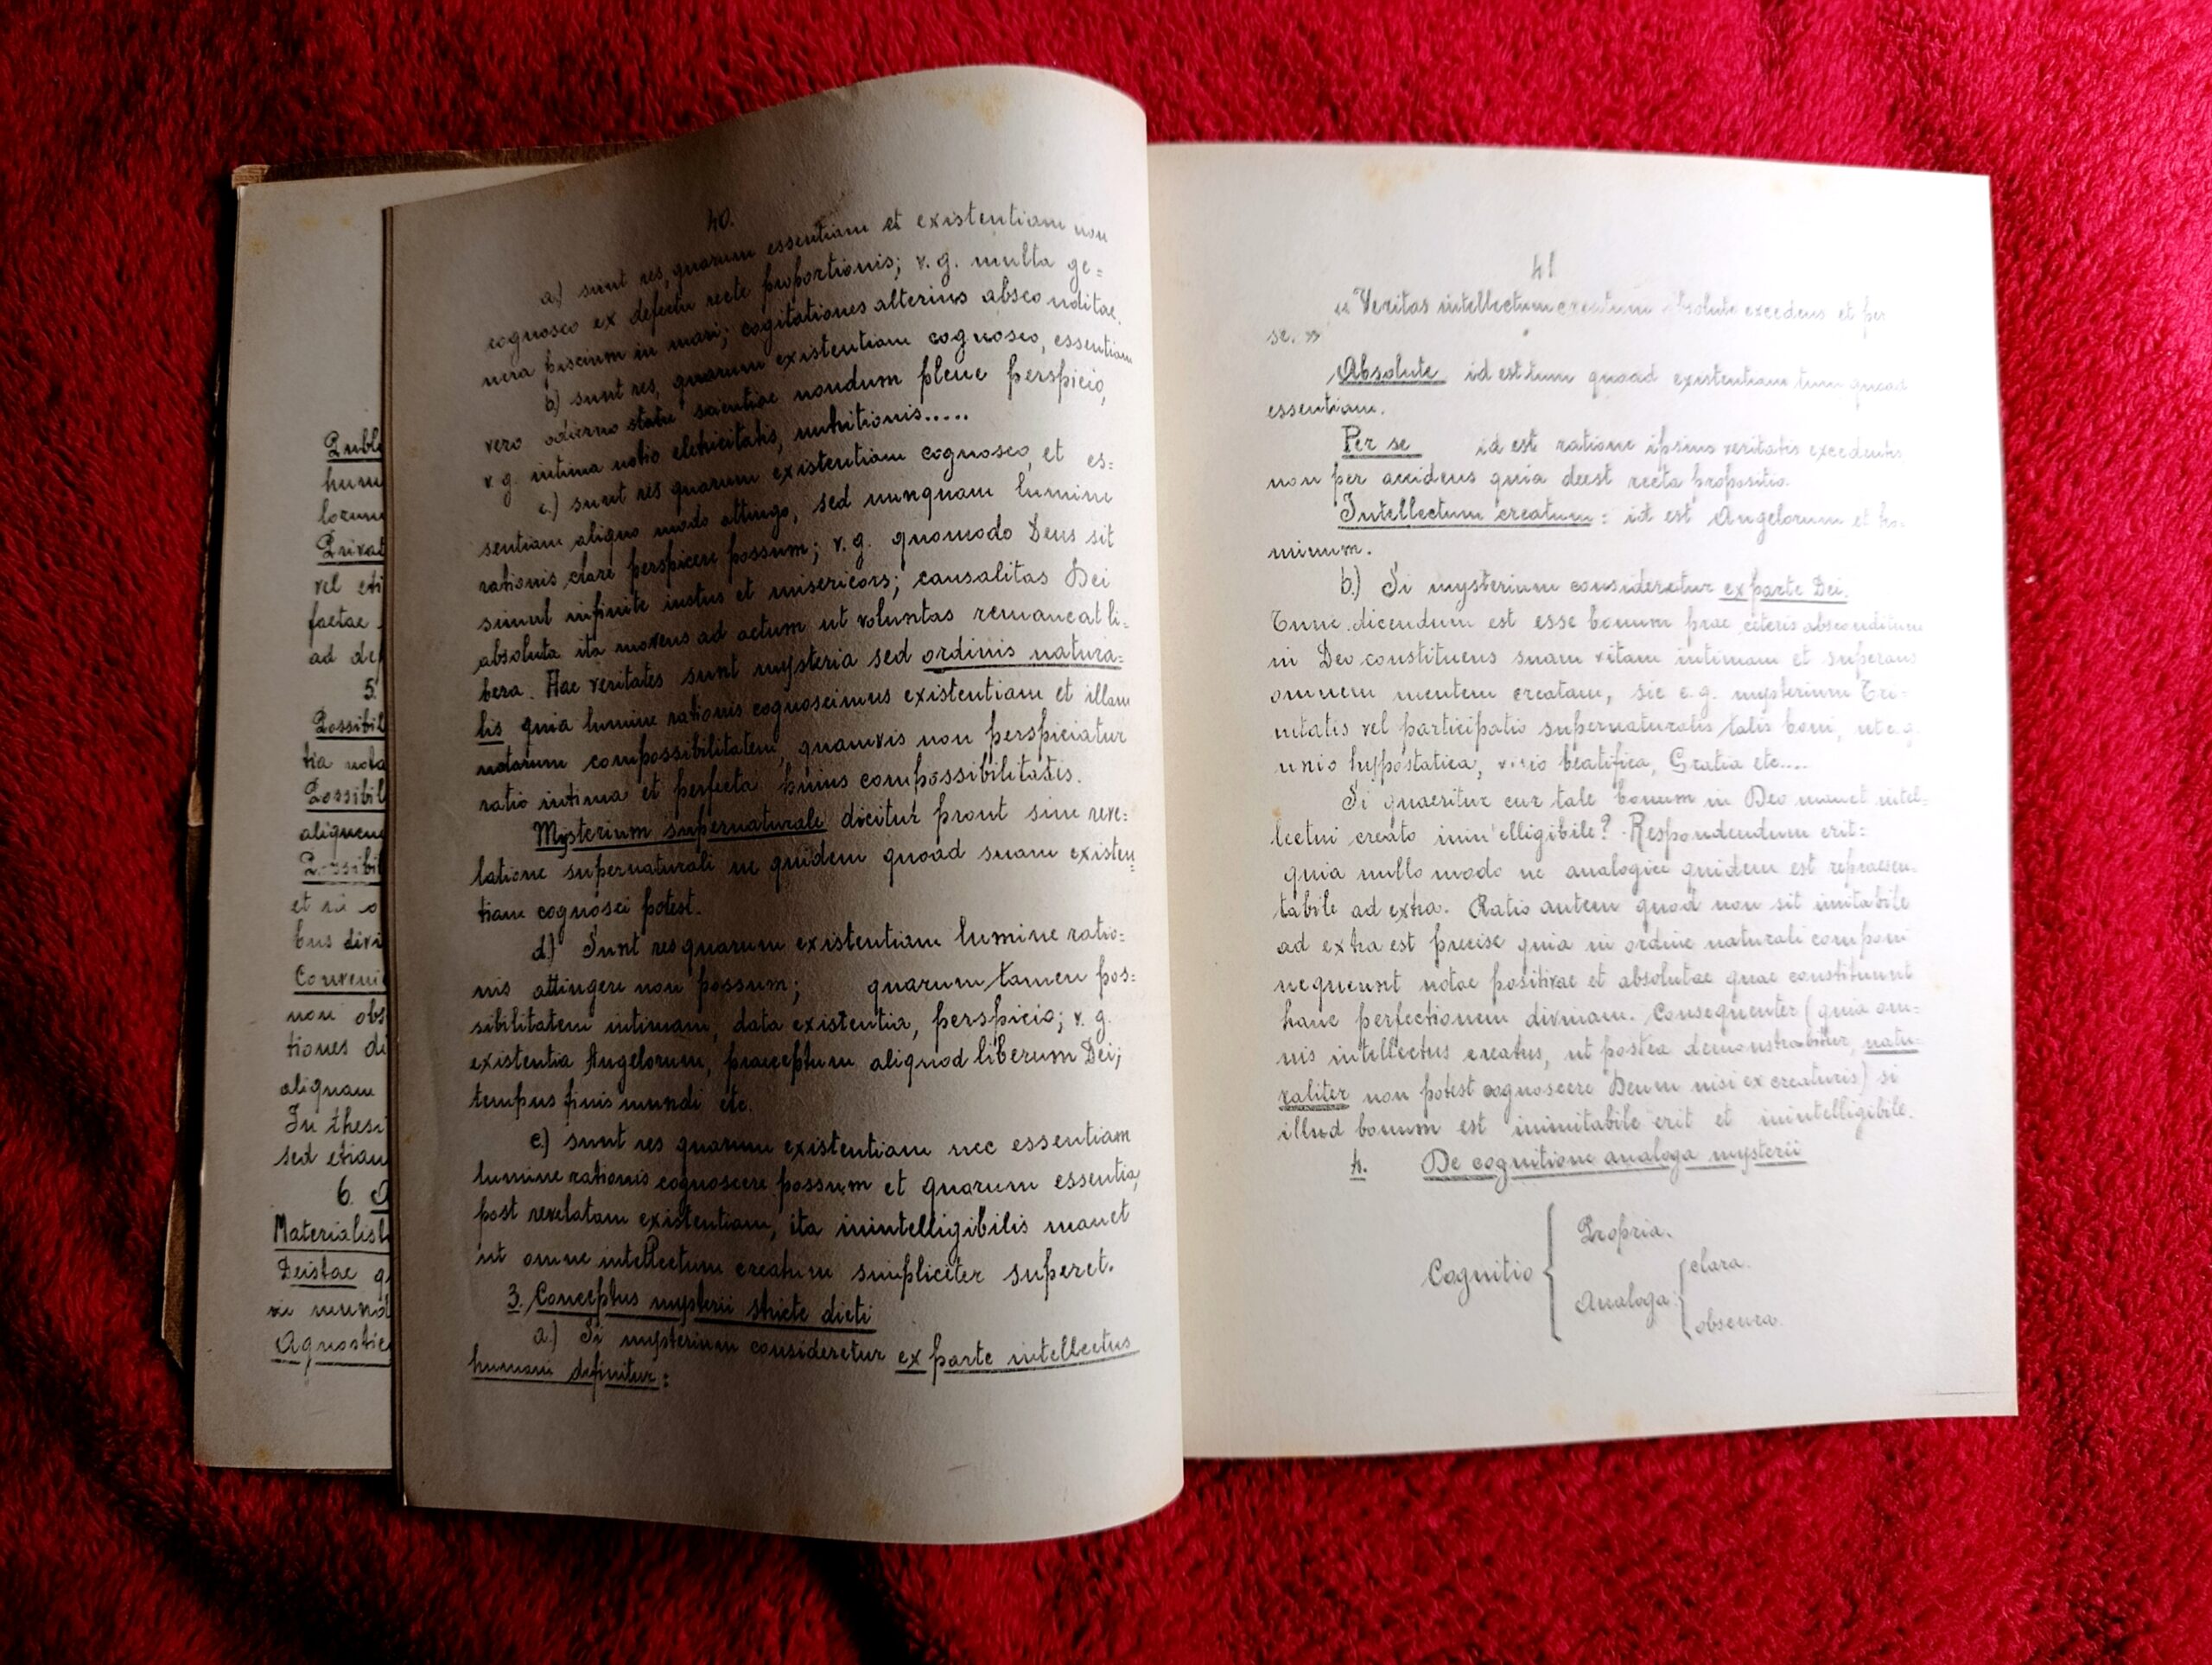 Publ
hum
locum
Privat
vel eti
factae
ad de
5.
Possibil
tia nota
Possibil
aliquem
Possibil
et in o
bus divi
Conveni
non obs
tiones di
aliquam
In thesi
sed etiam
6.
Materialist
Deistae q
in mund
Agnostic
40.
a) sunt res, quarum essentiam et existentiam non
cognosco ex defectu recte proportionis; v. g. multa ge=
nera piscium in mari; cogitationes alterius absconditae.
b) sunt res, quarum existentiam cognosco, essentiam
vero odierno statu scientiae nondum plene perspicio,
v. g. intima notio eletricitatis, nutritionis.....
c.) sunt res quarum existentiam cognosco, et es=
sentiam aliquo modo attingo, sed nunquam lumine
rationis clare perspicere possum; v. g. quomodo Deus sit
simul infinite iustus et misericors; causalitas Dei
absoluta ita movens ad actum ut voluntas remaneat li=
bera. Hae veritates sunt mysteria sed ordinis natura=
lis quia lumine rationis cognoscimus existentiam et illam
notarum compossibilitatem, quamvis non perspiciatur
ratio intima et perfecta huius compossibilitatis.
Mysterium supernaturale dicitur prout sine reve=
latione supernaturali ne quidem quoad suam existen=
tiam cognosci potest.
d) Sunt res quarum existentiam lumine ratio=
nis attingere non possum; quarum tamen pos=
sibilitatem intimam, data existentia, perspicio; v. g.
existentia Angelorum, praeceptum aliquod liberum Dei;
tempus finis mundi etc.
e) sunt res quarum existentiam nec essentiam
lumine rationis cognoscere possum et quarum essentia,
post revelatam existentiam, ita inintelligibilis manet
ut omne intellectum creatum simpliciter superet.
3. Conceptus mysterii stricte dicti
a.) Si mysterium consideretur ex parte intellectus
humani definitur:
41
« Veritas intellectum creatum absolute excedens et per
se. »
Absolute id est tum quoad existentiam tum quoad
essentiam.
Per se id est ratione ipsius veritatis excedentis
non per accidens quia deest recta propositio.
Intellectum creatum: id est Angelorum et ho=
minum.
b.) Si mysterium consideretur ex parte Dei.
Tunc dicendum est esse bonum prae ceteris absconditum
in Deo constituens suam vitam intimam et superans
omnem mentem creatam, sic e. g. mysterium Tri=
nitatis vel participatio supernaturalis talis boni, ut e. g.
unio hypostatica, visio beatifica, Gratia etc....
Si quaeritur cur tale bonum in Deo manet intel=
lectui creato inintelligibile? Respondendum erit:
quia nullo modo ne analogice quidem est repraesen=
tabile ad extra. Ratio autem quod non sit imitabile
ad extra est precise quia in ordine naturali componi
nequeunt notae positivae et absolutae quae constituunt
hanc perfectionem divinam. Consequenter (quia om=
nis intellectus creatus, ut postea demonstrabitur, natu=
raliter non potest cognoscere Deum nisi ex creaturis) si
illud bonum est inimitabile erit et inintelligibile.
4. De cognitione analoga mysterii
Cognitio
Propria.
Analoga
clara.
obscura.